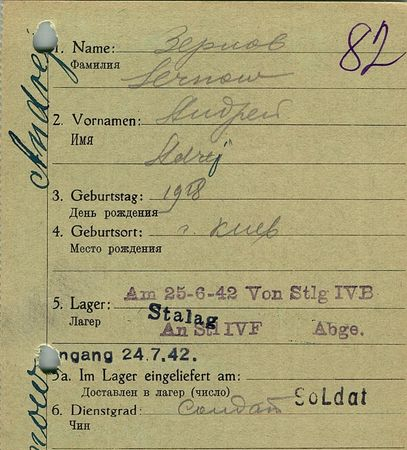 82
1. Name: Зернов
Фамилия Sernow
2. Vornamen: Андрей
Имя
Adrij
3. Geburtstag: 1918
День рождения
4. Geburtsort: г. Киев
Место рождения
Am 25-6-42 Von Stlg IVB
5. Lager: Stalag
Лагер An Stl IVF Abge.
ngang 24.7.42.
5a. Im Lager eingeliefert am:
Доставлен в лагер (число)
6. Dienstgrad: Солдат Soldat
Чин
Andrej
now